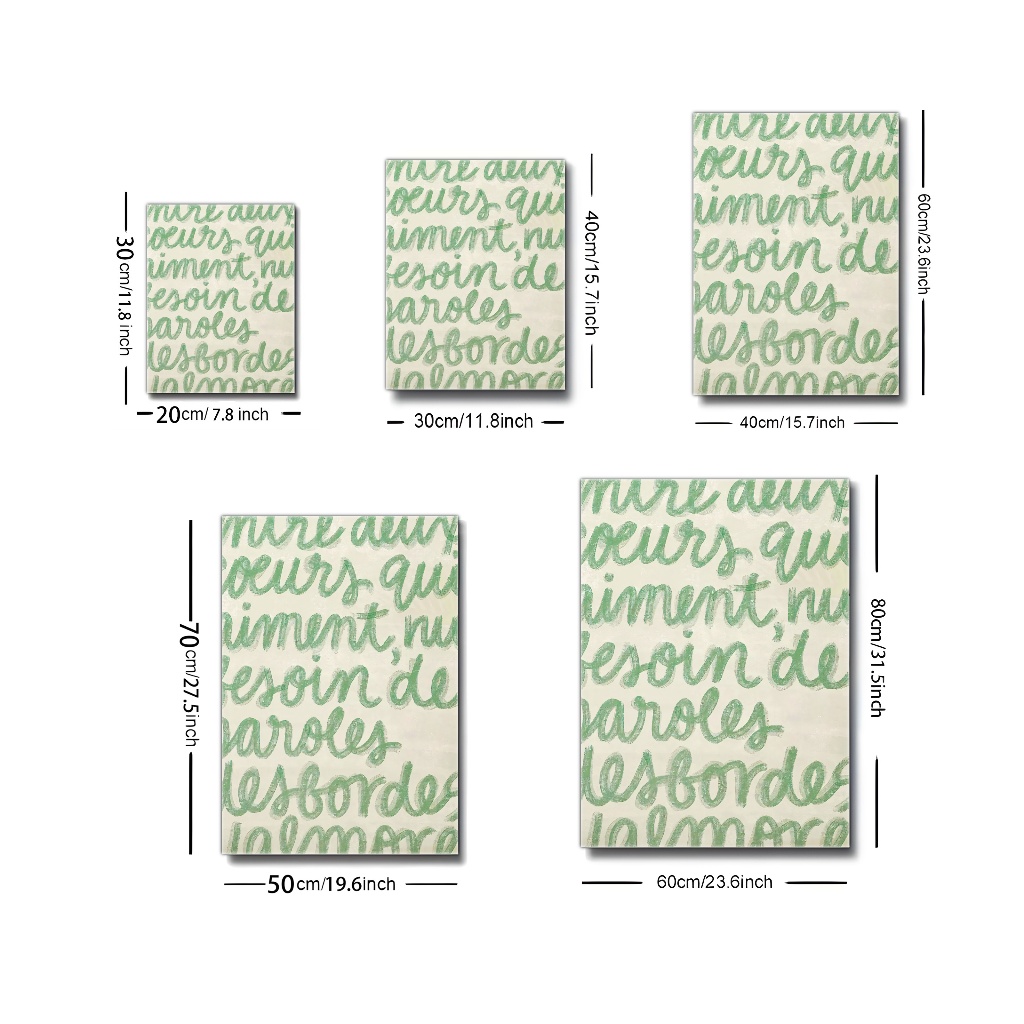 nire deux
oeurs qui
aiment, nu
besoin de
paroles
lesbordes
30cm/11.8 inch
20cm/ 7.8 inch
nire deux
oeurs qui
aiment, nu
besoin de
paroles
lesbordes
40cm/15.7inch
30cm/11.8inch
nire deux
oeurs qui
aiment, nu
besoin de
paroles
lesbordes
60cm/23.6inch
40cm/15.7inch
nire deux
oeurs qui
aiment, nu
besoin de
paroles
lesbordes
70cm/27.5inch
50cm/19.6inch
nire deux
oeurs qui
aiment, nu
besoin de
paroles
lesbordes
80cm/31.5inch
60cm/23.6inch